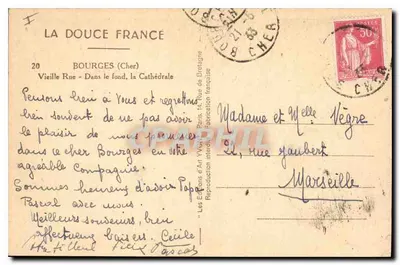 I
LA DOUCE FRANCE
20 BOURGES (Cher)
Vieille Rue - Dans le fond, la Cathédrale
Pensons bien à vous et regrettons
bien souvent de ne pas avoir
le plaisir de nous
dans ce cher Bourges en votre
agréable Compagnie.
Sommes heureux d'avoir Papa
Pascal avec nous.
Meilleurs souvenirs, bien
affectueux baisers. Cécile
Félix Pascal
Les Editions d'Art "Yvon", Paris, 15, Rue de Bretagne
Reproduction interdite Fabrication française
BOURGES
21
33
CHER
50
CHER
Madame et Melle Vègre
22, rue Jaubert
Marseille
CPARHIL